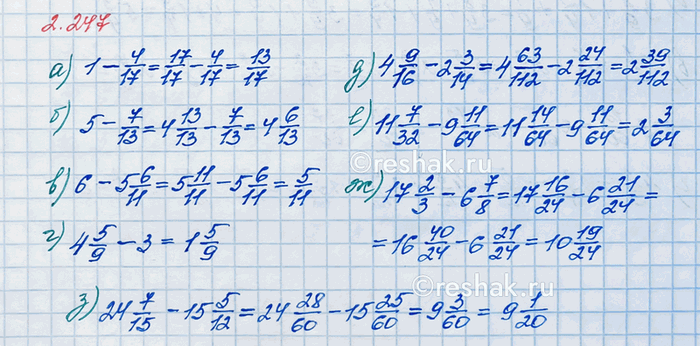 2.247
а) 1 - 4/17 = 17/17 - 4/17 = 13/17
б) 5 - 7/13 = 4 13/13 - 7/13 = 4 6/13
в) 6 - 5 6/11 = 5 11/11 - 5 6/11 = 5/11
г) 4 5/9 - 3 = 1 5/9
д) 4 9/16 - 2 3/14 = 4 63/112 - 2 24/112 = 2 39/112
е) 11 7/32 - 9 11/64 = 11 14/64 - 9 11/64 = 2 3/64
ж) 17 2/3 - 6 7/8 = 17 16/24 - 6 21/24 =
= 16 40/24 - 6 21/24 = 10 19/24
з) 24 7/15 - 15 5/12 = 24 28/60 - 15 25/60 = 9 3/60 = 9 1/20
©reshak.ru
©reshak.ru
©reshak.ru